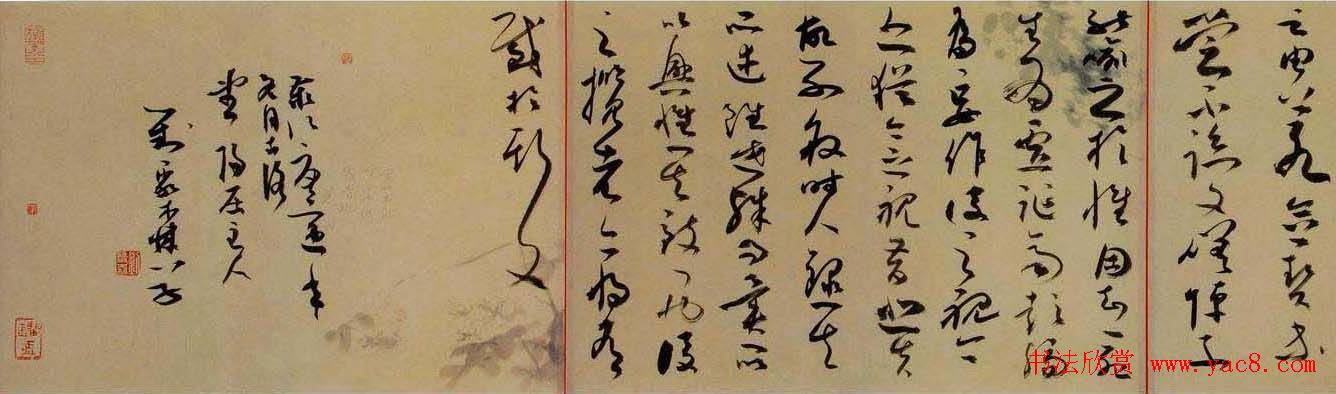 之由若合一契未
嘗不臨文嗟悼不
能喻之於懷固知一死
生為虛誕齊彭殤
為妄作後之視今
亦猶今之視昔悲夫
故列敘時人錄其
所述雖世殊事異所
以興懷其致一也後
之攬者亦將有
感於斯文
年
月
主人
书法欣赏 www.yac8.com